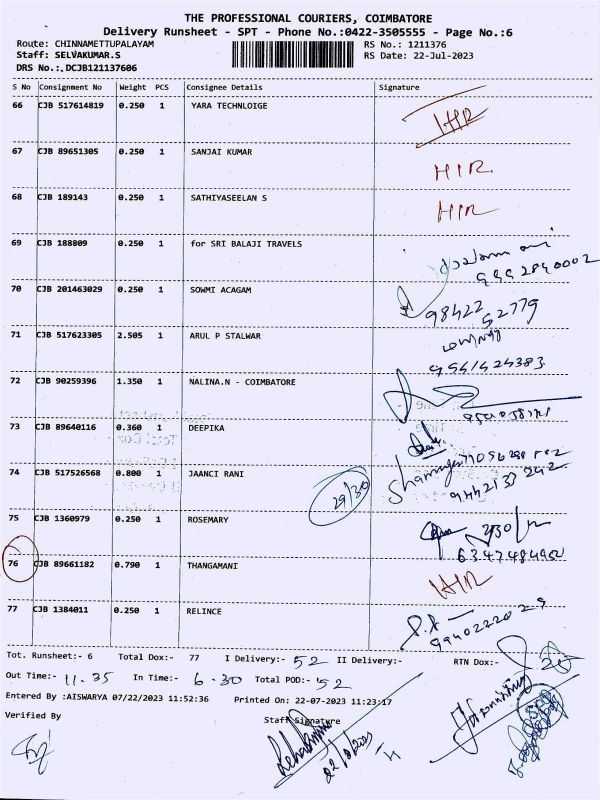 THE PROFESSIONAL COURIERS, COIMBATORE
Delivery Runsheet - SPT - Phone No.:0422-3505555 - Page No.:6
Route: CHINNAMETTUPALAYAM RS No.: 1211376
Staff: SELVAKUMAR.S RS Date: 22-Jul-2023
DRS No.:.DCJB121137606
S No Consignment No Weight PCS Consignee Details Signature
66 CJB 517614819 0.250 1 YARA TECHNLOIGE
67 CJB 89651305 0.250 1 SANJAI KUMAR HIR
68 CJB 189143 0.250 1 SATHIYASEELAN S HIR
69 CJB 188809 0.250 1 for SRI BALAJI TRAVELS
70 CJB 201463029 0.250 1 SOWMI ACAGAM 98422 52779
71 CJB 517623305 2.505 1 ARUL P STALWAR
72 CJB 90259396 1.350 1 NALINA.N - COIMBATORE
73 CJB 89640116 0.360 1 DEEPIKA
74 CJB 517526568 0.800 1 JAANCI RANI 29/30
75 CJB 1360979 0.250 1 ROSEMARY
76 CJB 89661182 0.790 1 THANGAMANI HIR
77 CJB 1384011 0.250 1 RELINCE
Tot. Runsheet:- 6 Total Dox:- 77 I Delivery:- 52 II Delivery:- RTN Dox:-
Out Time:- 11.35 In Time:- 6.30 Total POD:- 52
Entered By :AISWARYA 07/22/2023 11:52:36 Printed On: 22-07-2023 11:23:17
Verified By Staff Signature